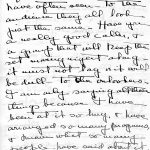 have often seen. to the
audience they all look
just the same. Have you
a really good caller, &
a grand that will keep the
set moving right along
it must not lag or it will
be dull to the onlookers.
I am only saying all these
things because I have
been at it so long, & have
arranged so many programs,
& know what so many
people have said about